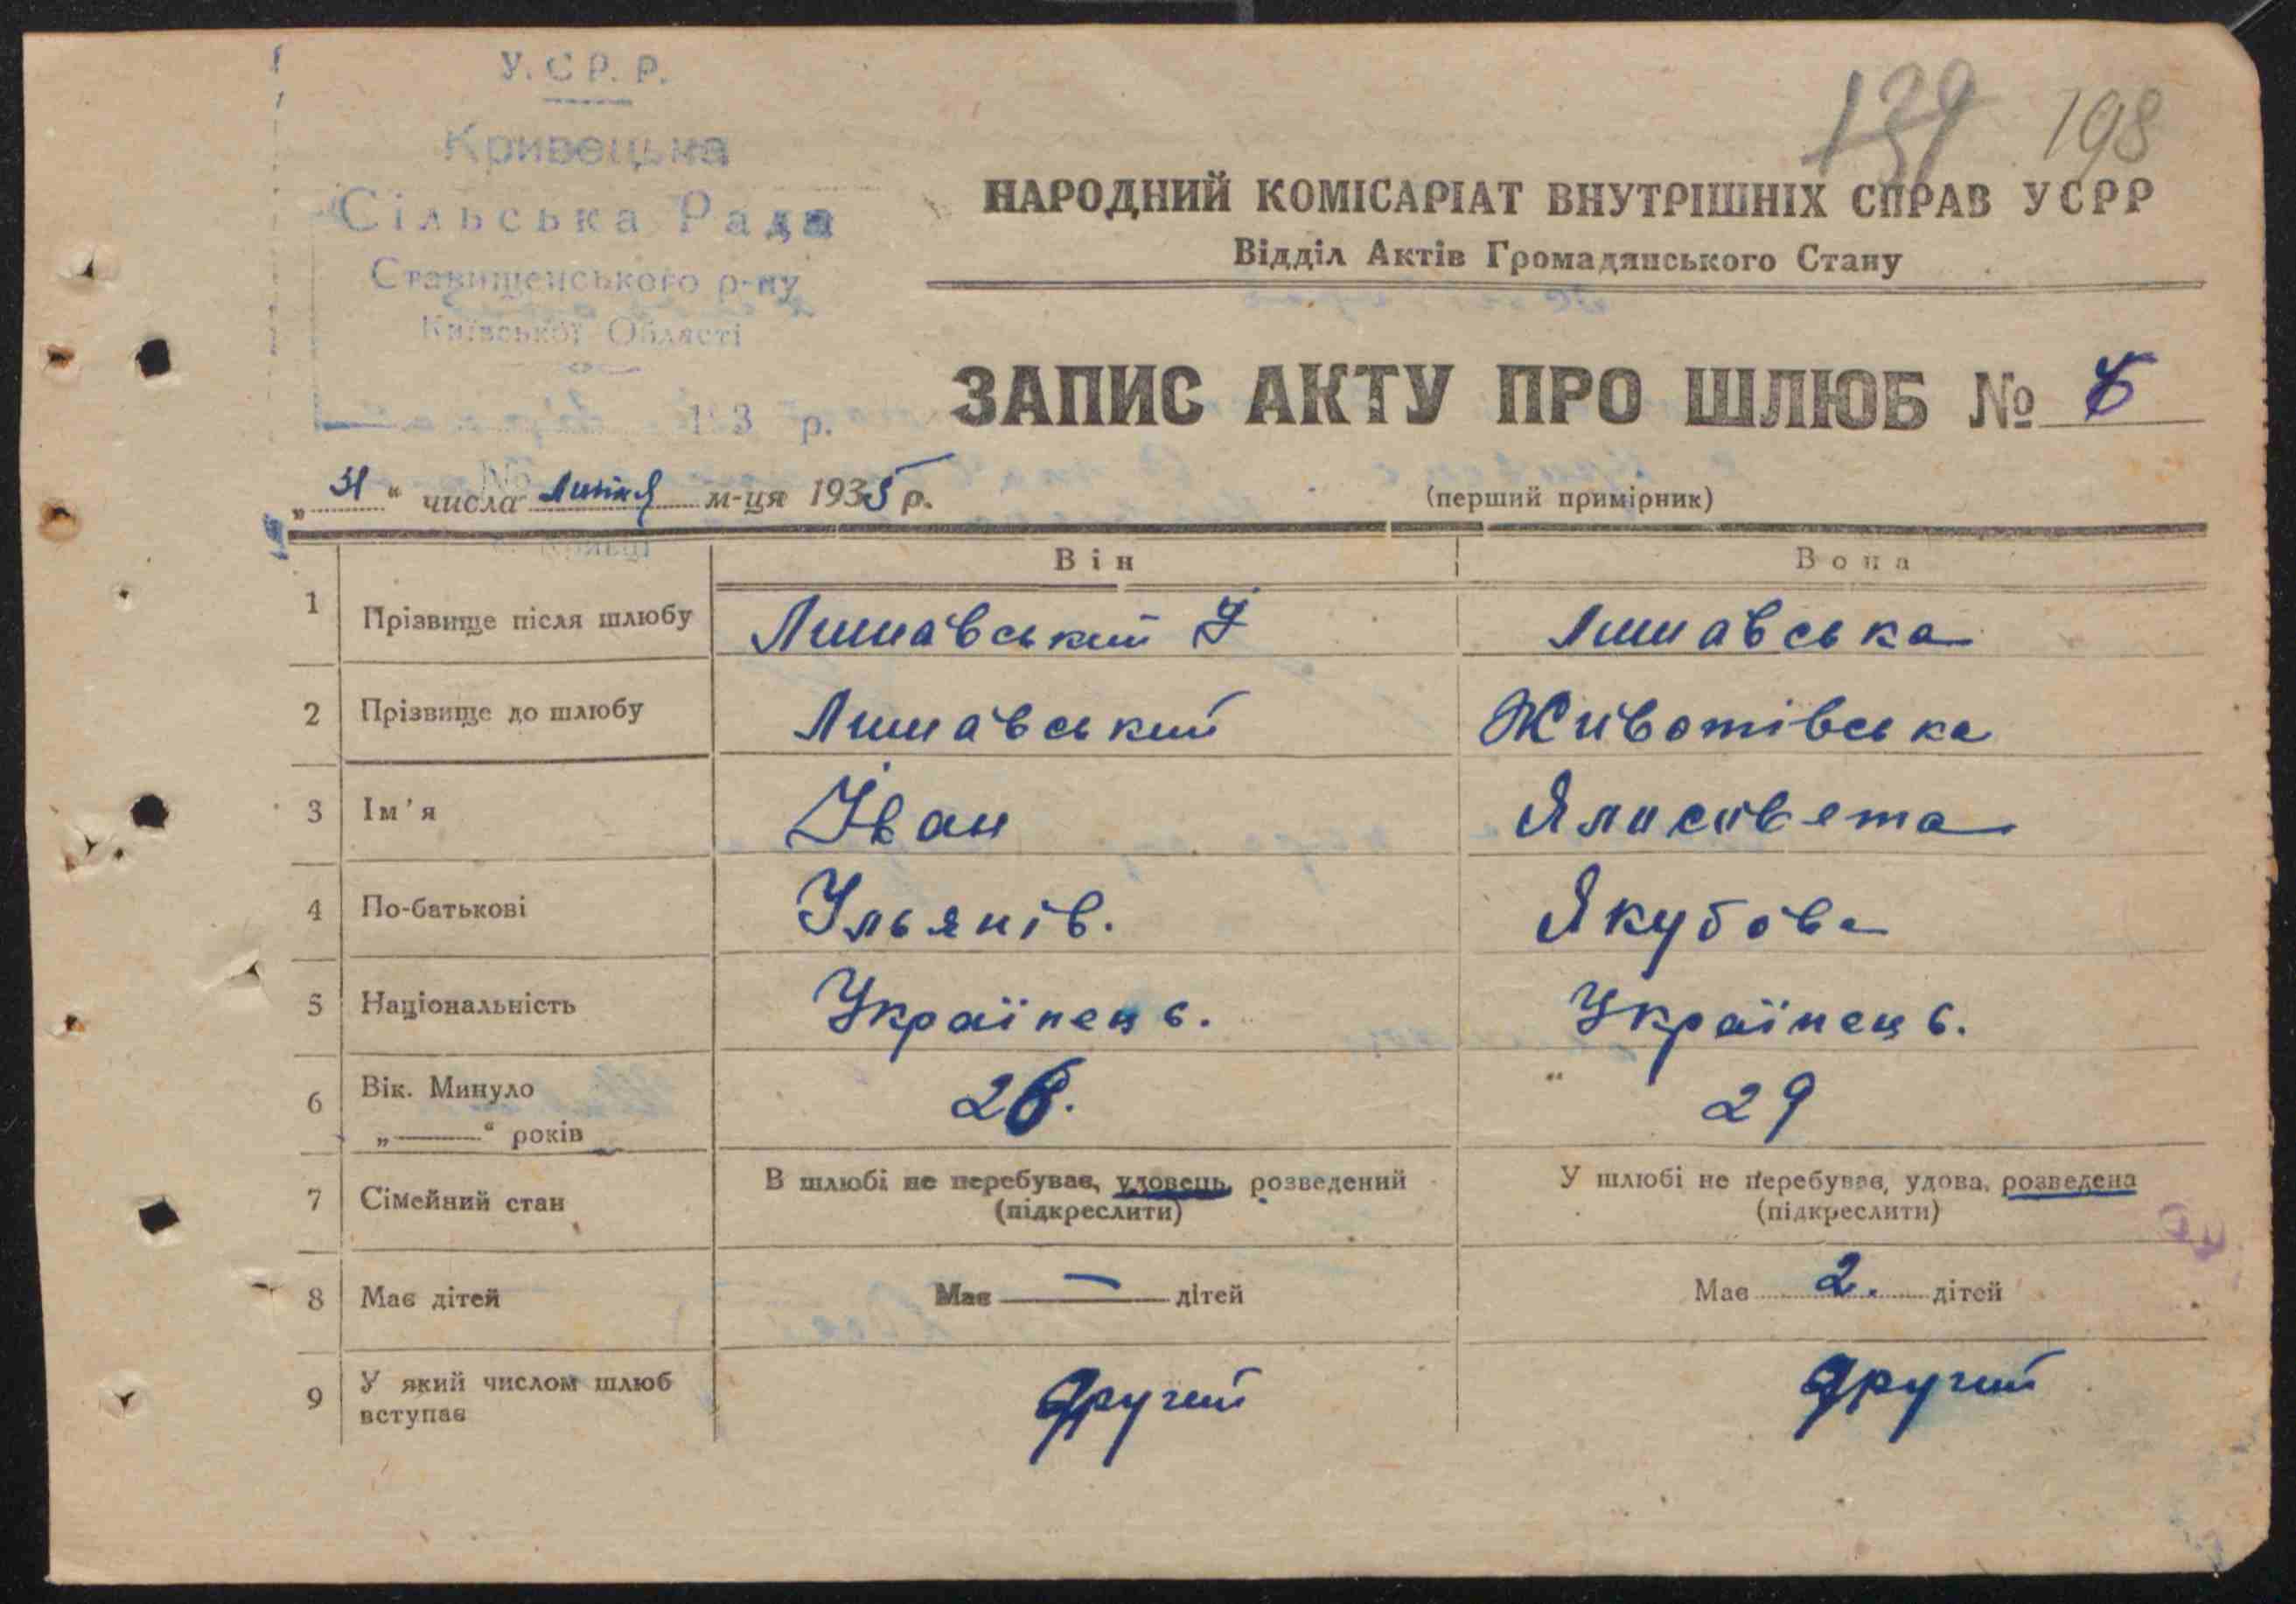 У.С.Р.Р.
Кривецька
Сільська Рада
Ставищенського р-ну
Київської Області
193 р.
№
с. Кривці
139 198
НАРОДНИЙ КОМІСАРІАТ ВНУТРІШНІХ СПРАВ УСРР
Відділ Актів Громадянського Стану
ЗАПИС АКТУ ПРО ШЛЮБ №
„31“ числа Липня м-ця 1935 р.
(перший примірник)
Він Вона
1 Прізвище після шлюбу Лишавський І Лишавська
2 Прізвище до шлюбу Лишавський Животівська
3 Ім'я Іван Ялисовета
4 По-батькові Ільянів. Якубова
5 Національність Українець. Українець.
6 Вік. Минуло „——“ років 28. 29
7 Сімейний стан В шлюбі не перебував, удовець, розведений (підкреслити) У шлюбі не перебував, удова, розведена (підкреслити)
8 Має дітей Має — дітей Має 2. дітей
9 У який числом шлюб вступає другий другий